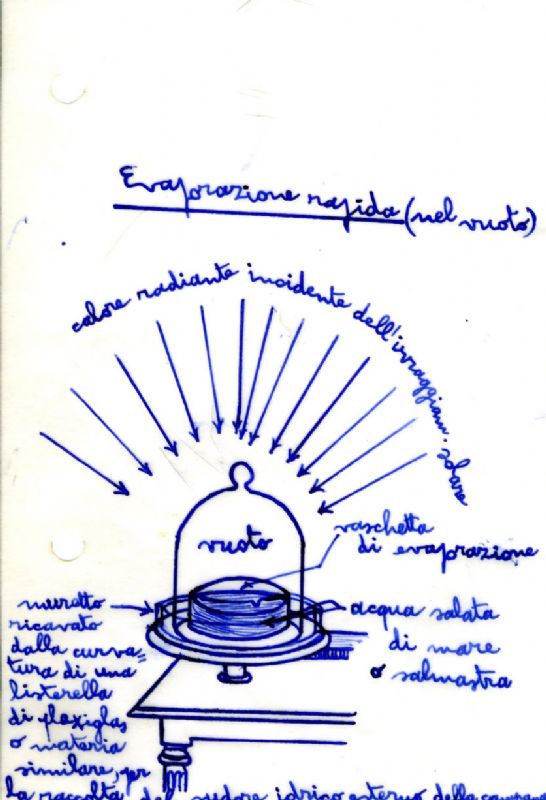 Evaporazione rapida (nel vuoto)
calore radiante incidente dell'irraggiam. solare
vuoto
vaschetta
di evaporazione
acqua salata
di mare
o salmastra
muretto
ricavato
dalla curva=
tura di una
listerella
di plexiglas
o materia
similare, per
la raccolta del sudore idrico esterno della campana